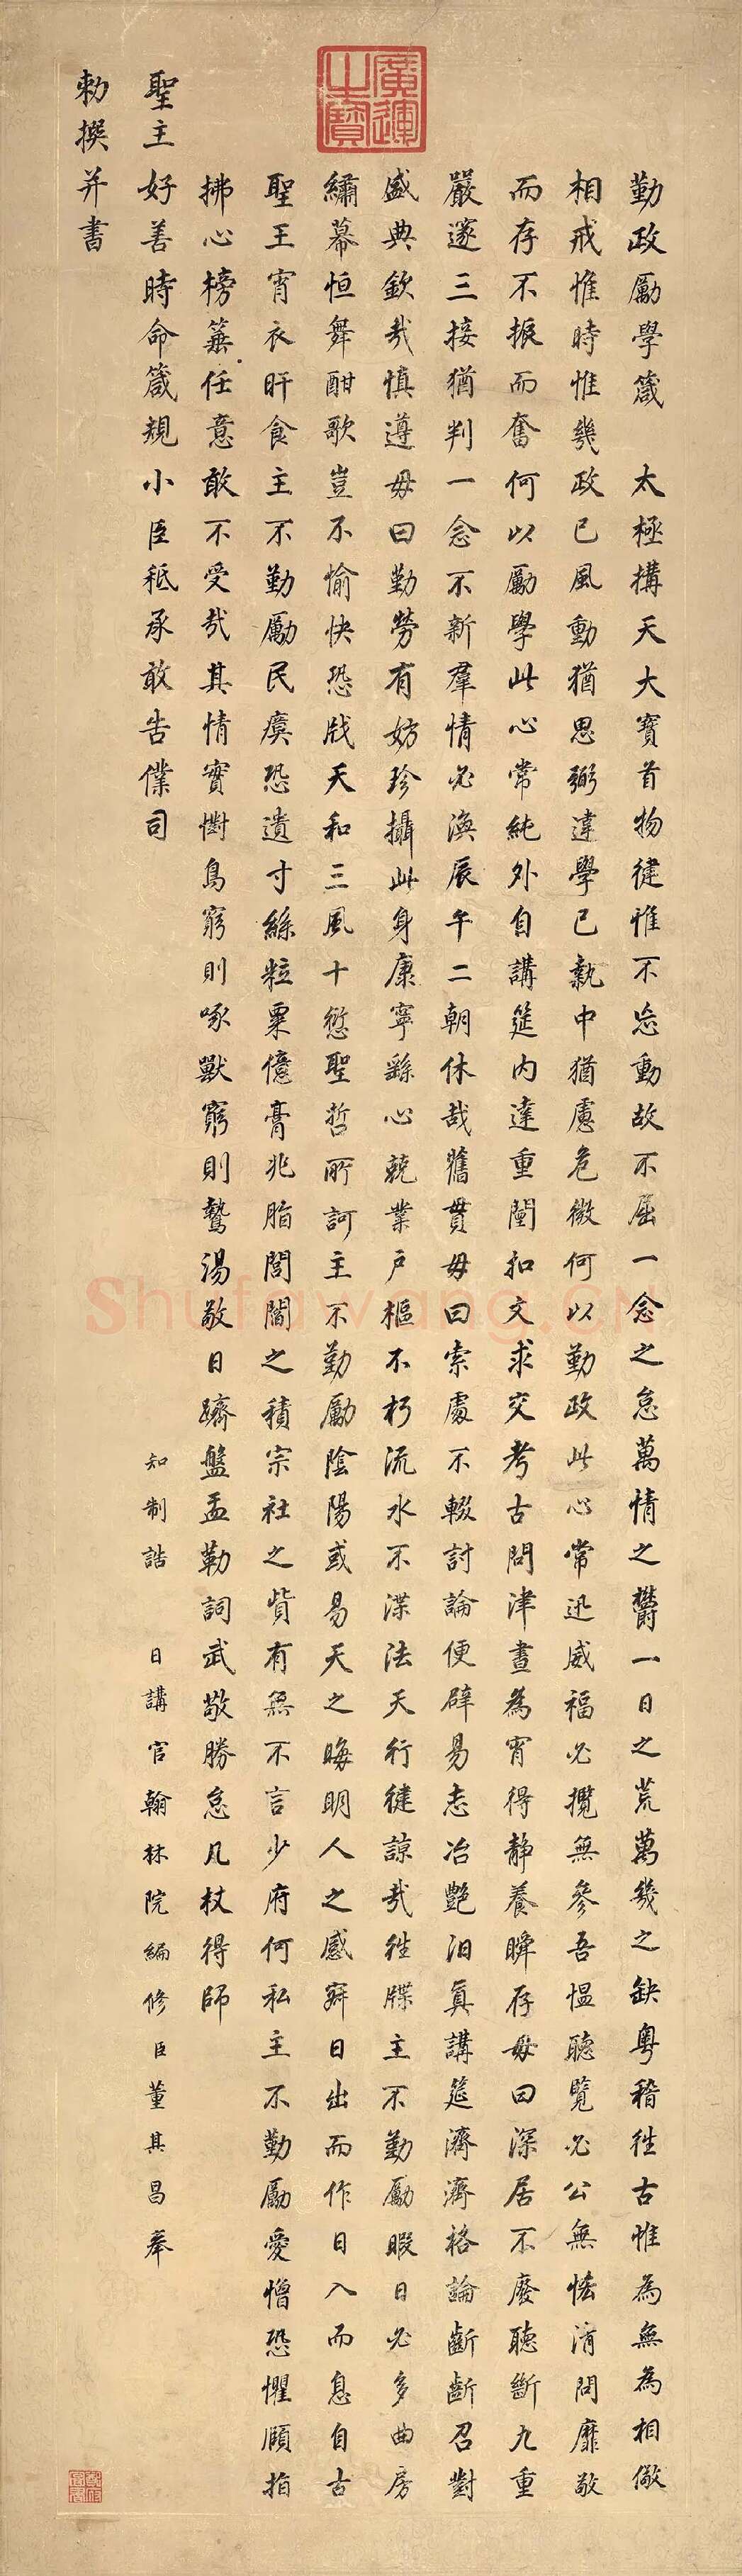 廣運之寶
勤政勵學箴 太極搆天大寶首物健惟不息動故不屈一念之怠萬情之欝一日之荒萬幾之缺粵稽徃古惟為無為相儆
相戒惟時惟幾政已風動猶思弼違學已執中猶慮危微何以勤政此心常迅威福必攬無參吾慍聽覽必公無恡清問靡敬
而存不振而奮何以勵學此心常純外自講筵內達重闈扣文求交考古問津晝為宵得靜養瞬存毋曰深居不廢聽斷九重
嚴邃三接猶判一念不新羣情必渙辰午二朝休哉舊貫毋曰索處不輟討論便辟易志冶艷汩真講筵濟濟格論齗齗召對
盛典欽哉慎遵毋曰勤勞有妨珍攝此身康寧繇心兢業戶樞不朽流水不渫法天行健諒哉徃牒主不勤勵暇日必多曲房
繡幕恒舞酣歌豈不愉快恐戕天和三風十愆聖哲所訶主不勤勵陰陽或易天之晦明人之感寐日出而作日入而息自古
聖王宵衣旰食主不勤勵民瘼恐遺寸絲粒粟億膏兆脂閭閻之積宗社之貲有無不言少府何私主不勤勵愛憎恐懼頤指
拂心榜箠任意敢不受哉其情實懟鳥窮則啄獸窮則鷙湯敬日躋盤盂勒詞武敬勝怠几杖得師
聖主好善時命箴規小臣秪承敢告僕司 知制誥 日講官翰林院編修臣董其昌奉
勅撰并書
Shufawang.CN